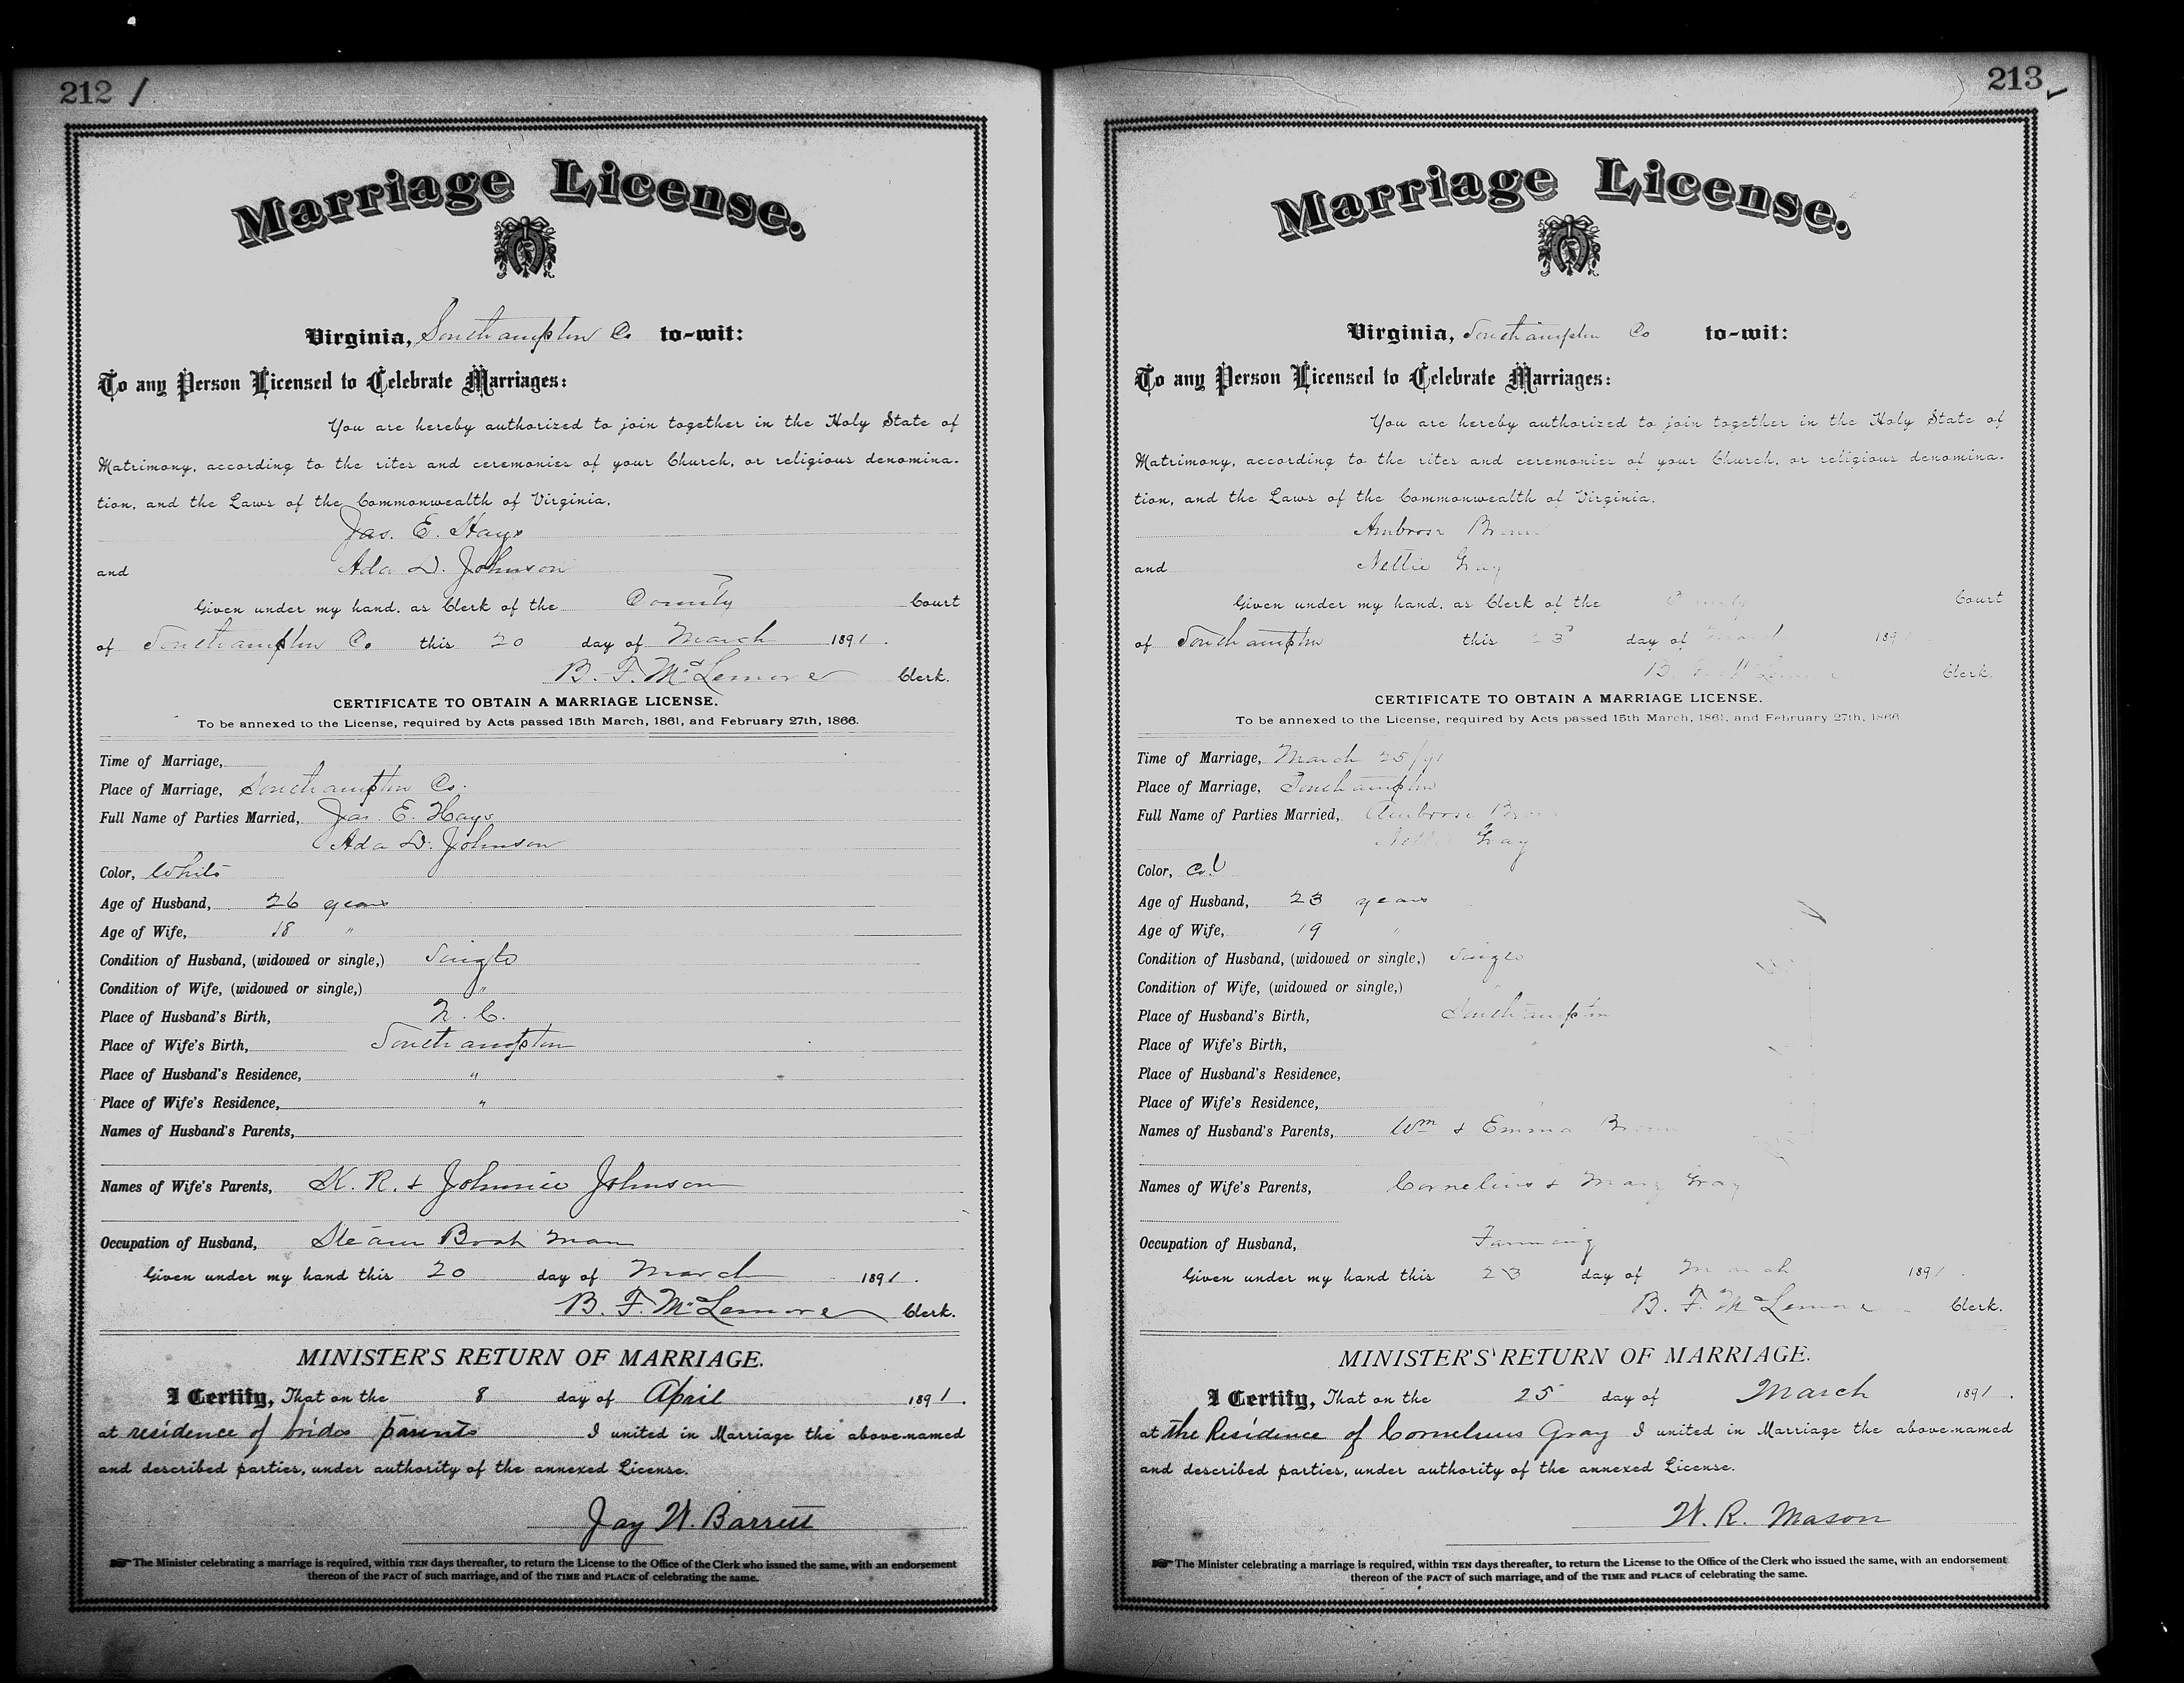 212
Marriage License.
Virginia, Southampton Co to-wit:
To any Person Licensed to Celebrate Marriages:
You are hereby authorized to join together in the Holy State of
Matrimony, according to the rites and ceremonies of your Church, or religious denomina-
tion, and the Laws of the Commonwealth of Virginia.
Jas. E. Hays
and Ada D. Johnson
Given under my hand, as Clerk of the County Court
of Southampton Co this 20 day of March 1891.
B. F. McLemore Clerk.
CERTIFICATE TO OBTAIN A MARRIAGE LICENSE.
To be annexed to the License, required by Acts passed 15th March, 1861, and February 27th, 1866.
Time of Marriage,
Place of Marriage, Southampton Co.
Full Name of Parties Married, Jas. E. Hays
Ada D. Johnson
Color, White
Age of Husband, 26 years
Age of Wife, 18 "
Condition of Husband, (widowed or single,) Single
Condition of Wife, (widowed or single,) "
Place of Husband's Birth, N. C.
Place of Wife's Birth, Southampton
Place of Husband's Residence, "
Place of Wife's Residence, "
Names of Husband's Parents,
Names of Wife's Parents, K. R. & Johnnie Johnson
Occupation of Husband, Steam Boat man
Given under my hand this 20 day of March 1891.
B. F. McLemore Clerk.
MINISTER'S RETURN OF MARRIAGE.
I Certify, That on the 8 day of April 1891.
at residence of brides parents I united in Marriage the above-named
and described parties, under authority of the annexed License.
Jay W. Barrett
The Minister celebrating a marriage is required, within TEN days thereafter, to return the License to the Office of the Clerk who issued the same, with an endorsement
thereon of the FACT of such marriage, and of the TIME and PLACE of celebrating the same.
213
Marriage License.
Virginia, Southampton Co to-wit:
To any Person Licensed to Celebrate Marriages:
You are hereby authorized to join together in the Holy State of
Matrimony, according to the rites and ceremonies of your Church, or religious denomina-
tion, and the Laws of the Commonwealth of Virginia.
Ambrose Brown
and Nettie Gray
Given under my hand, as Clerk of the County Court
of Southampton this 23d day of March 189
B. F. McLemore Clerk.
CERTIFICATE TO OBTAIN A MARRIAGE LICENSE.
To be annexed to the License, required by Acts passed 15th March, 1861, and February 27th, 1866
Time of Marriage, March 25/91
Place of Marriage, Southampton
Full Name of Parties Married, Ambrose Brown
Nettie Gray
Color, Col
Age of Husband, 23 years
Age of Wife, 19 "
Condition of Husband, (widowed or single,) Single
Condition of Wife, (widowed or single,)
Place of Husband's Birth, Southampton
Place of Wife's Birth,
Place of Husband's Residence,
Place of Wife's Residence,
Names of Husband's Parents, Wm & Emma Brown
Names of Wife's Parents, Cornelius & Mary Gray
Occupation of Husband, Farming
Given under my hand this 23 day of March 1891.
B. F. McLemore Clerk.
MINISTER'S RETURN OF MARRIAGE.
I Certify, That on the 25 day of March 1891.
at the Residence of Cornelius Gray I united in Marriage the above-named
and described parties, under authority of the annexed License.
W. R. Mason
The Minister celebrating a marriage is required, within TEN days thereafter, to return the License to the Office of the Clerk who issued the same, with an endorsement
thereon of the FACT of such marriage, and of the TIME and PLACE of celebrating the same.